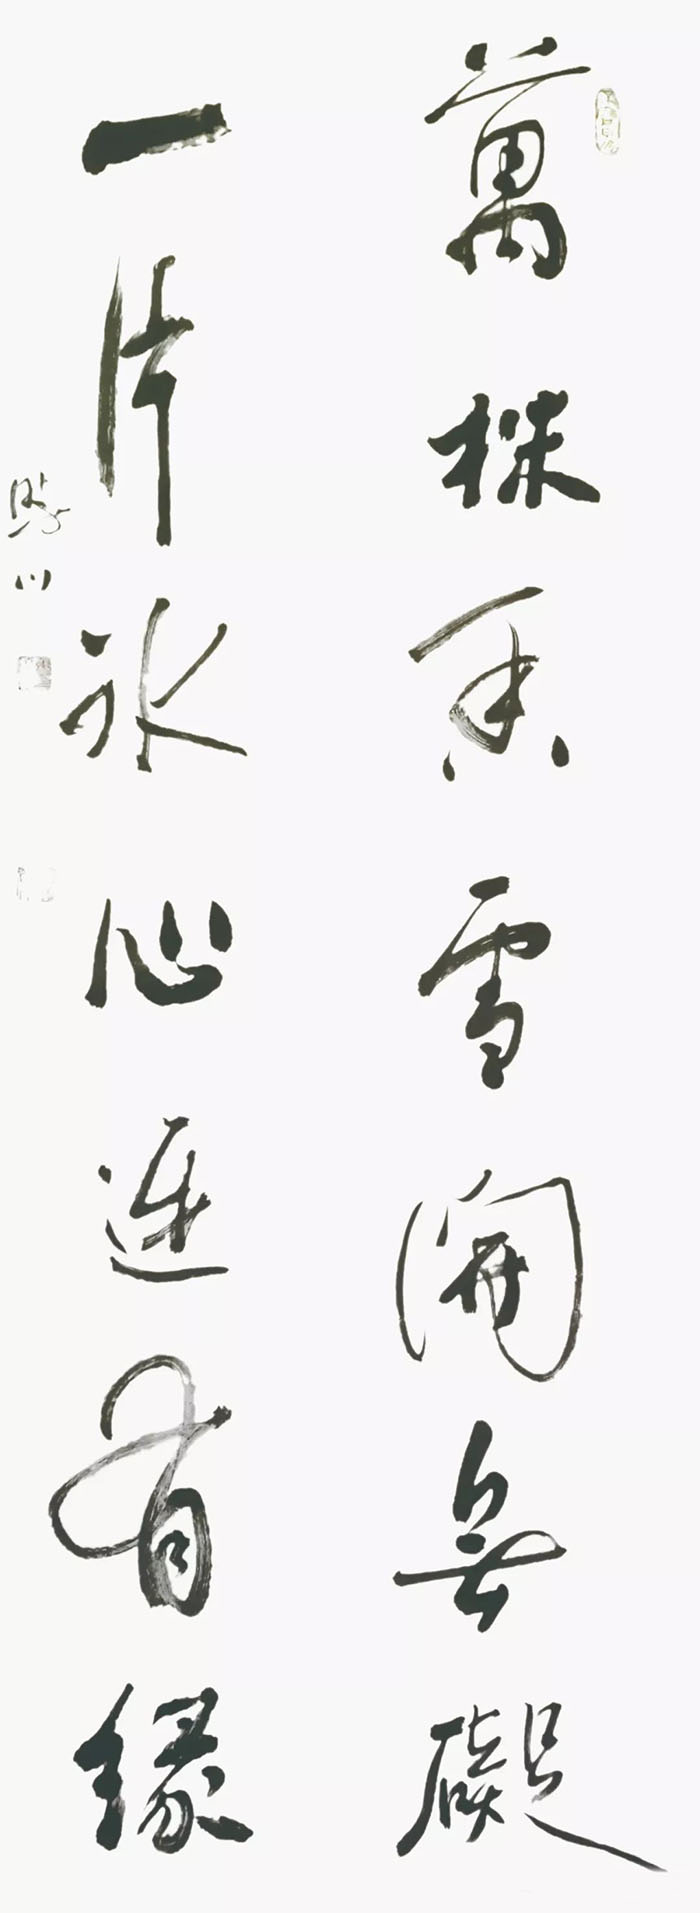 萬株香雪開無礙
一片冰心連有緣
川